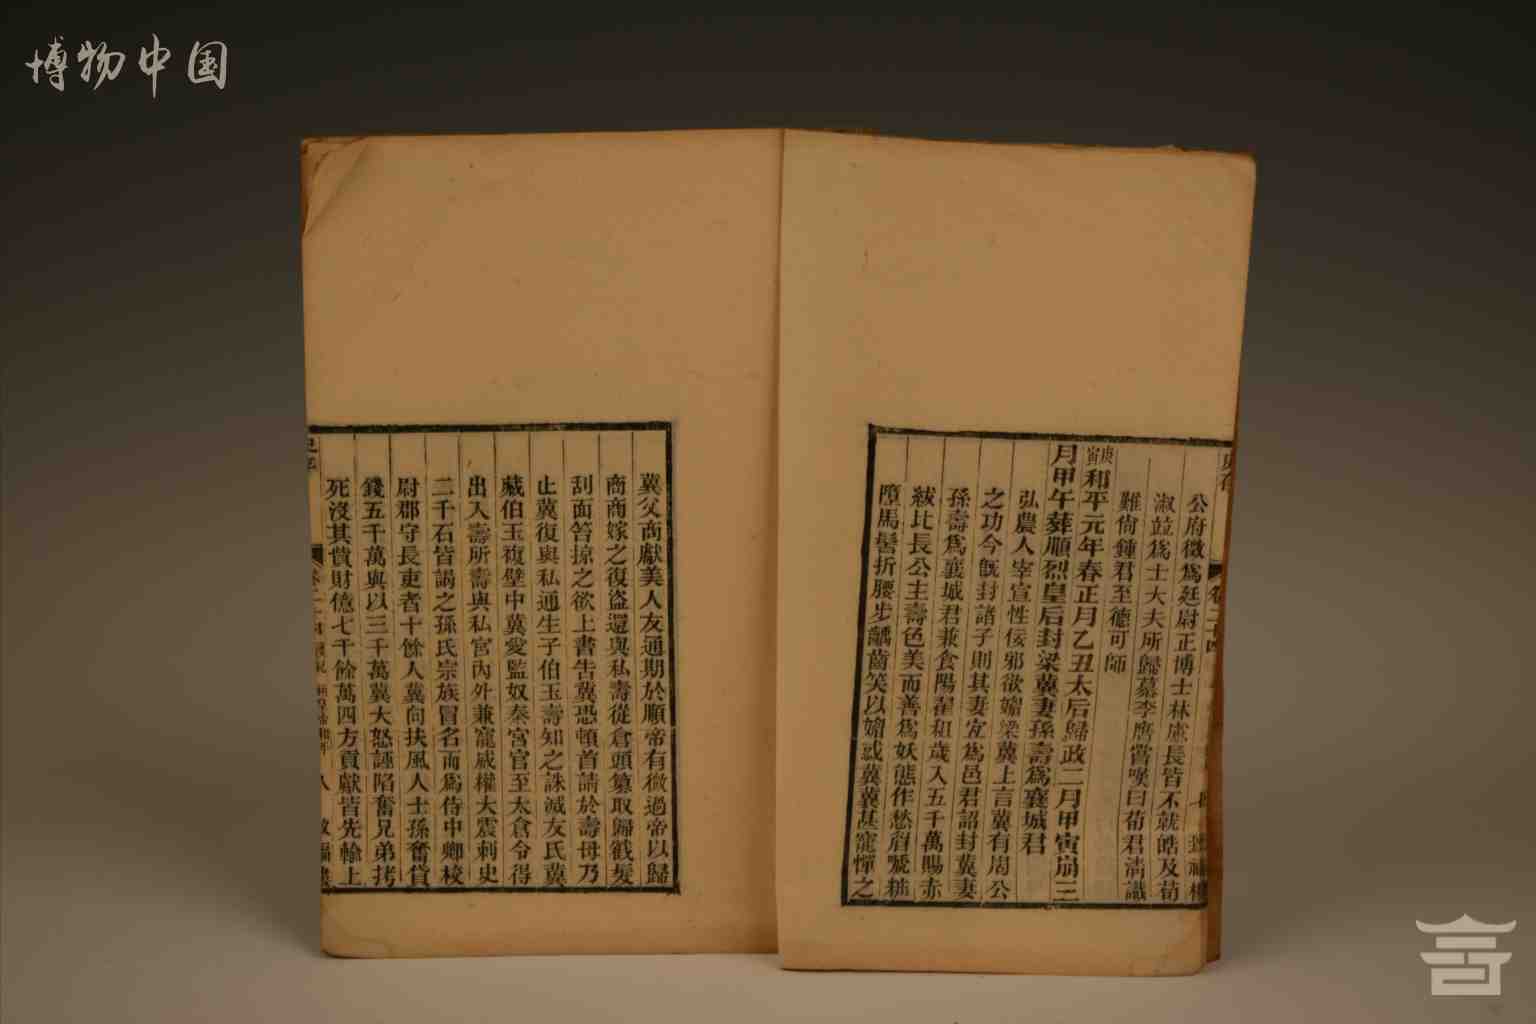 博物中国
公府徵爲廷尉正博士林慮長皆不就皓及荀
淑竝爲士大夫所歸慕李膺嘗嘆曰荀君淸識
難尙鍾君至德可師
庚寅和平元年春正月乙丑太后歸政二月甲寅崩三
月甲午葬順烈皇后封梁冀妻孫壽爲襄城君
弘農人宰宣性佞邪欲媚梁冀上言冀有周公
之功今旣封諸子則其妻宜爲邑君詔封冀妻
孫壽爲襄城君兼食陽翟租歲入五千萬賜赤
紱比長公主壽色美而善爲妖態作愁眉嗁糚
墮馬髻折腰步齲齒笑以媚惑冀冀甚寵憚之
冀父商獻美人友通期於順帝有微過帝以歸
商商嫁之復盜還與私壽從倉頭篡取歸截髮
刮面笞掠之欲上書告冀恐頓首請於壽母乃
止冀復與私通生子伯玉壽知之誅滅友氏冀
藏伯玉複壁中冀愛監奴秦宮官至太倉令得
出入壽所壽與私宮內外兼寵威權大震刺史
二千石皆謁之孫氏宗族冒名而爲侍中卿校
尉郡守長吏者十餘人冀向扶風人士孫奮貸
錢五千萬與以三千萬冀大怒誣陷奮兄弟拷
死沒其貲財億七千餘萬四方貢獻皆先輸上